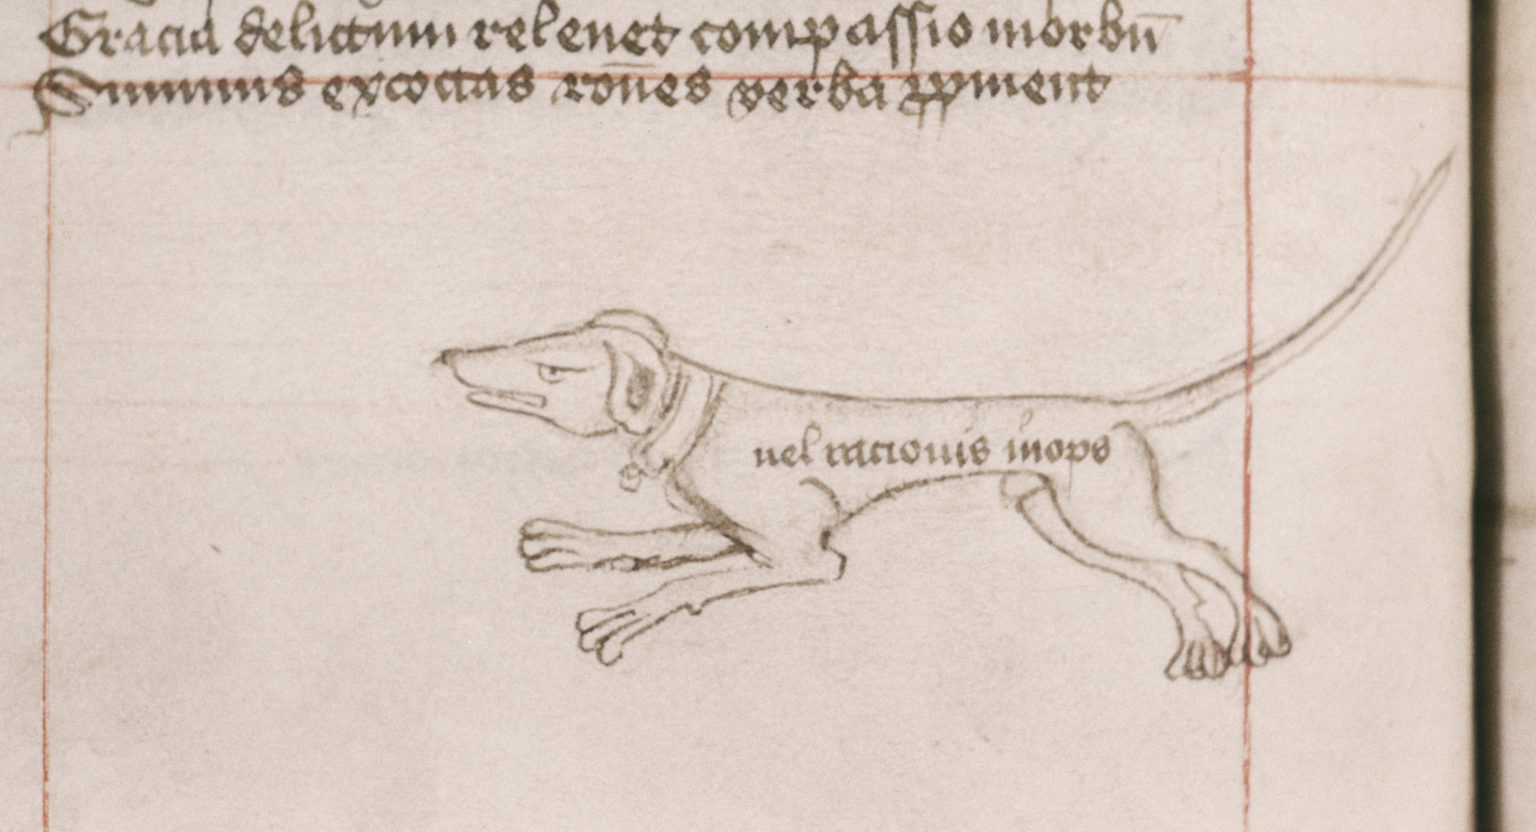 Gracia delictum releuet compassio morbū
Summus excoctas rōnes verba ꝓpinent
vel racionis inops